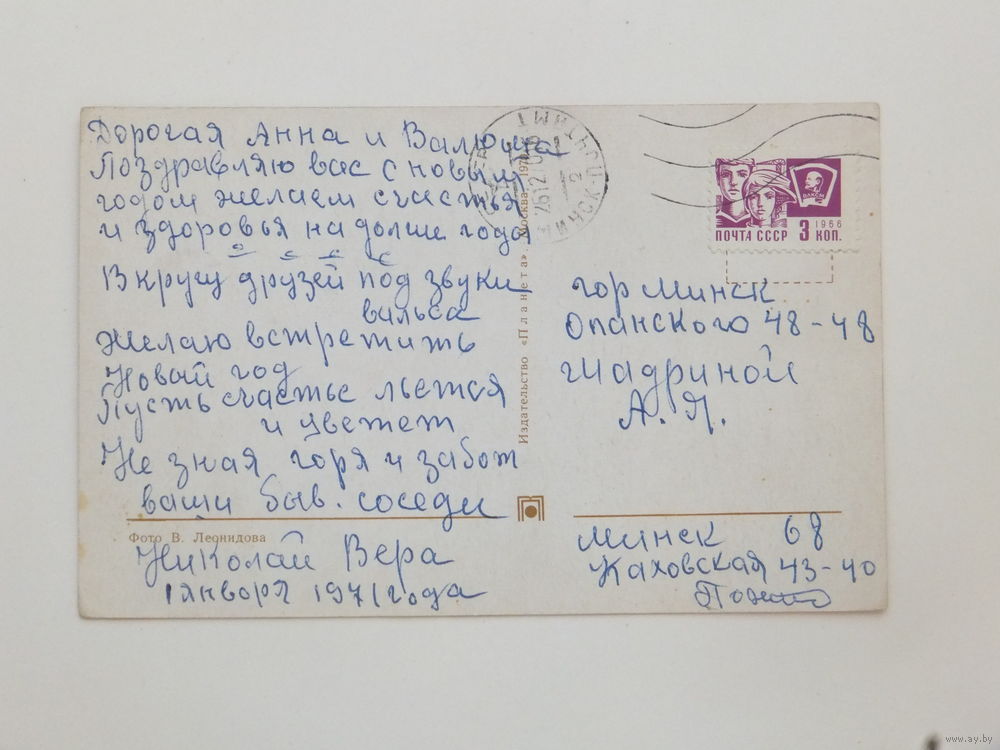 Дорогая Анна и Валюша
Поздравляю вас с новым
годом желаем счастья
и здоровья на долгие года
В кругу друзей под звуки
вальса
Желаю встретить
Новый год
Пусть счастье льётся
и цветет
Не зная горя и забот
ваши быв. соседи
Фото В. Леонидова
Николай Вера
1 января 1971 года
Издательство «Планета». Москва 197
МИНСК-ПОЧТАМТ
26 12 70
ПОЧТА СССР 3 КОП.
1966
ВЛКСМ
гор Минск
Опанского 48-48
Шадриной
А. Я.
Минск 68
Каховская 43-40
www.ay.by